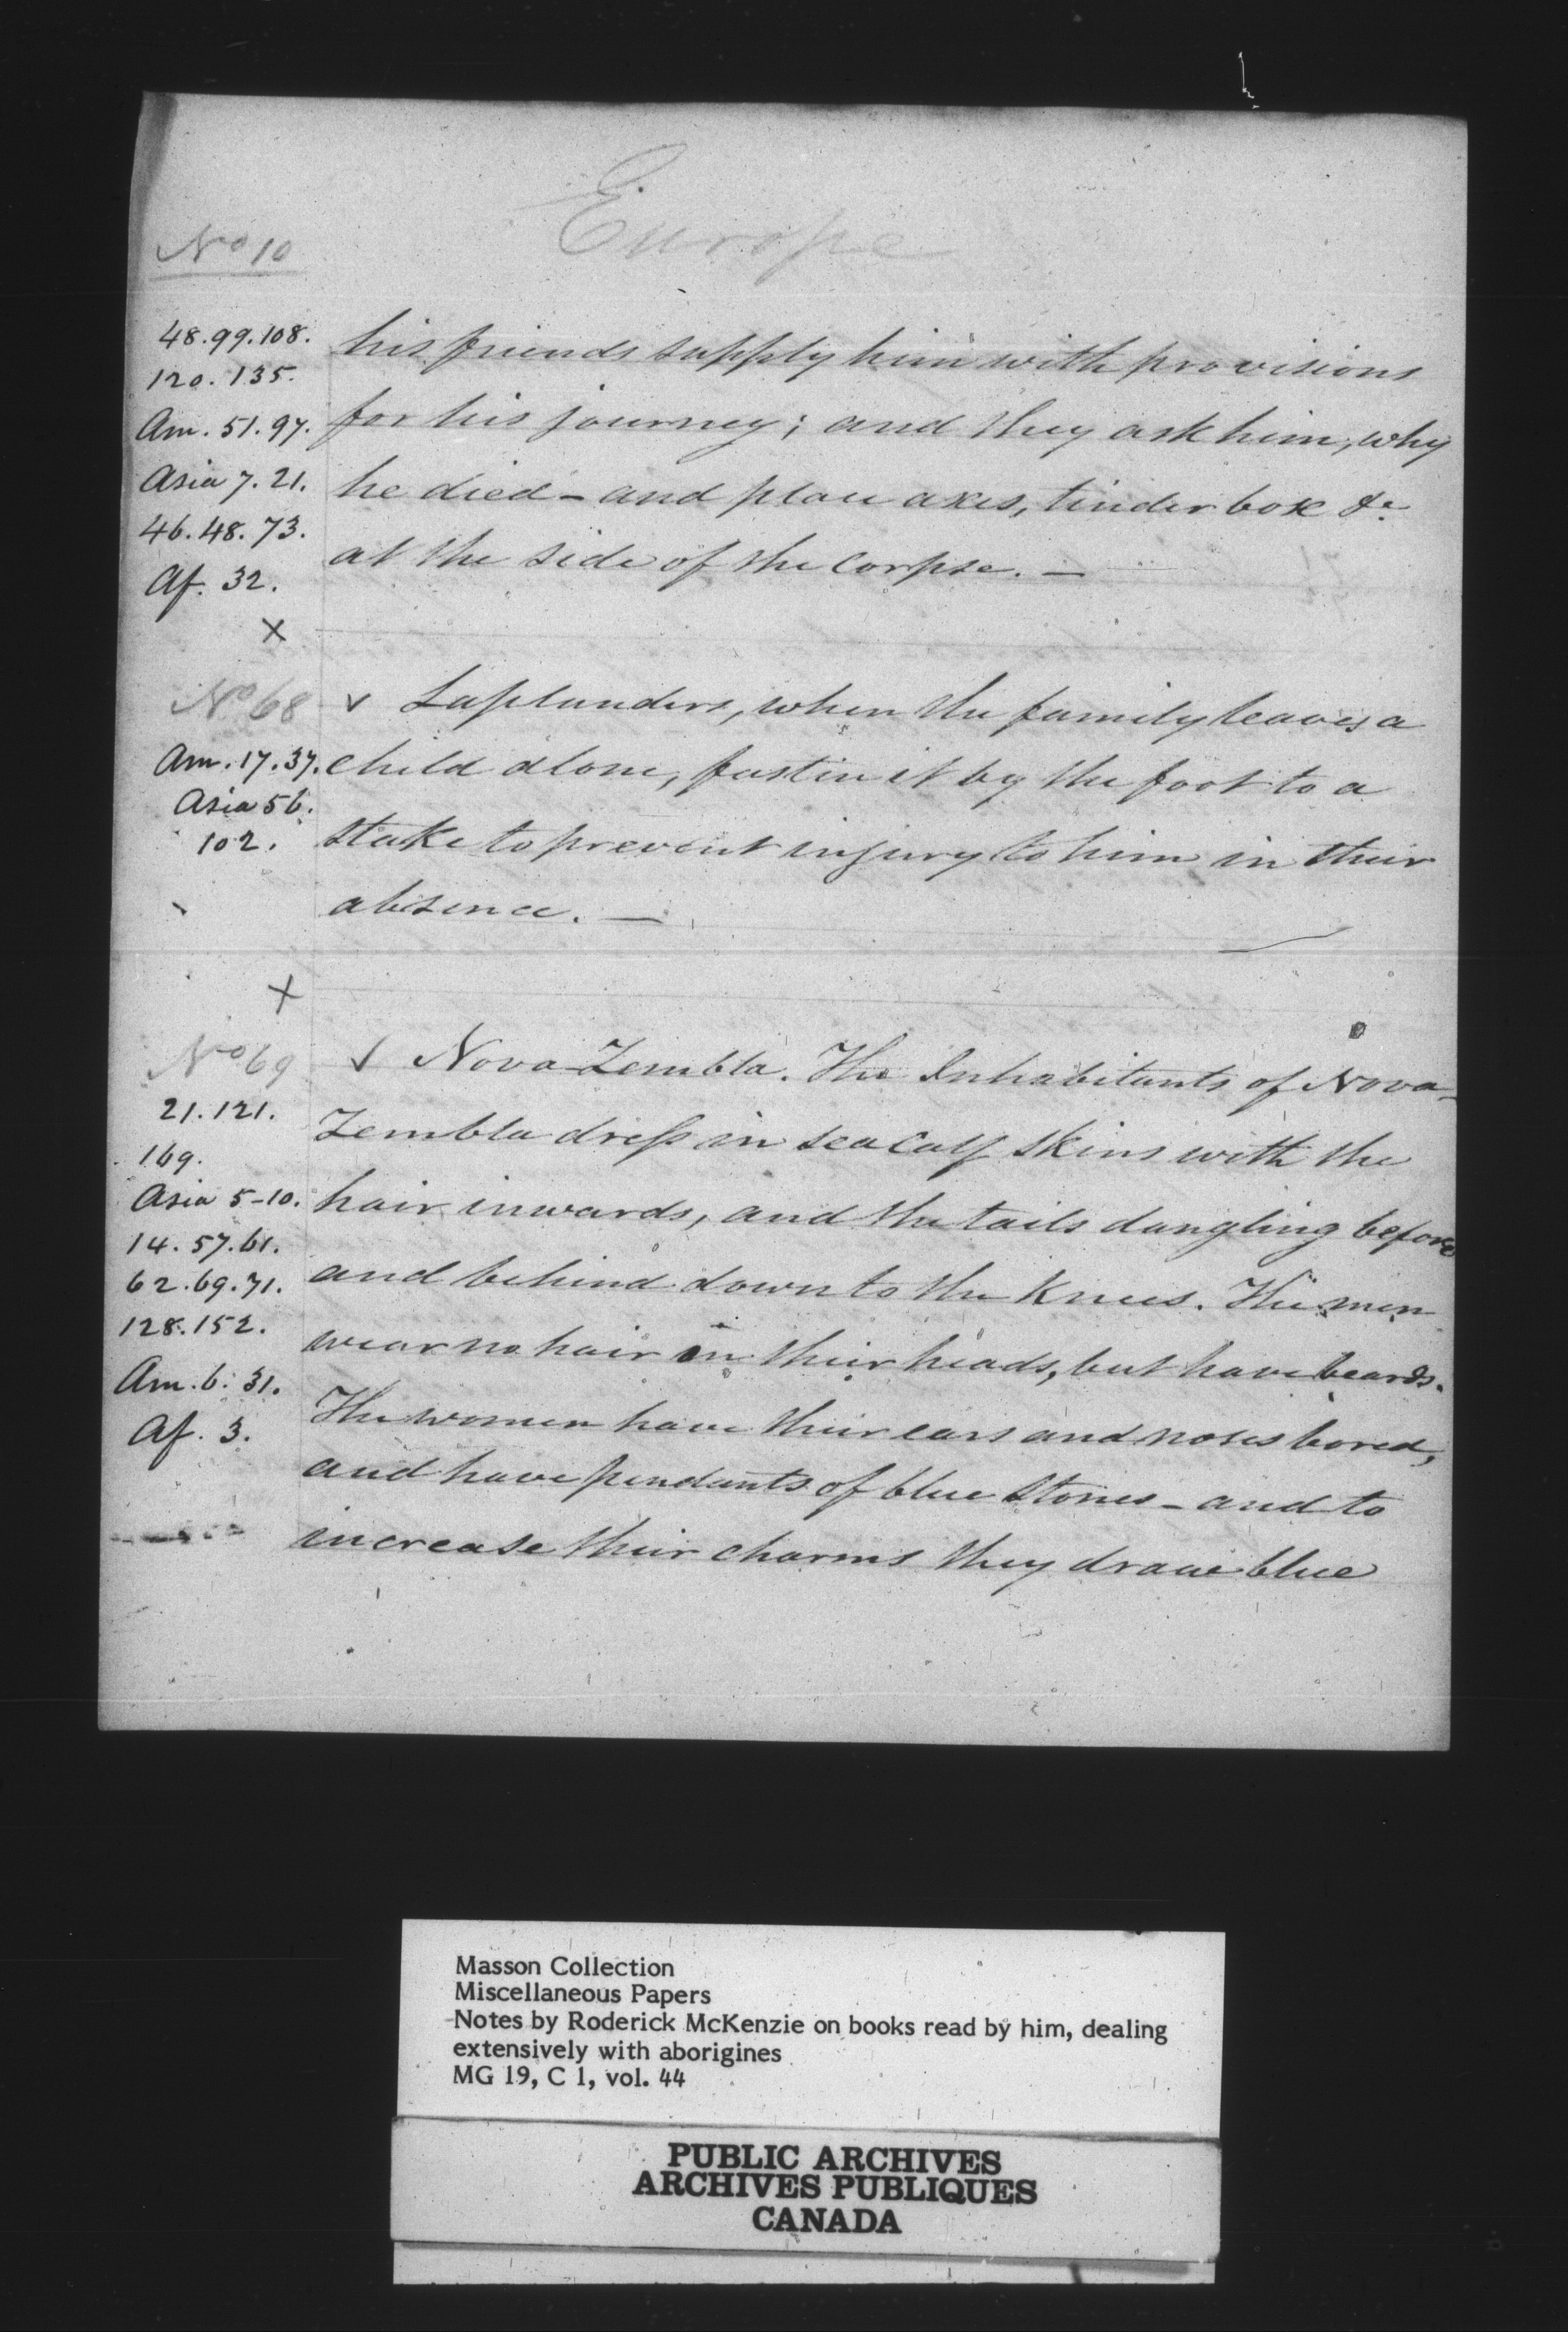 Europe
No 10
48.99.108.
120.135.
Am. 51.97.
Asia 7.21.
46.48.73.
Af. 32.
his friends supply him with provisions
for his journey; and they ask him, why
he died - and place axes, tinder box &c
at the side of the corpse. —
x
No 68
Am. 17.37.
Asia 56.
102.
v Laplanders, when the family leaves a
child alone, fastin it by the foot to a
stake to prevent injury to him in their
absence. —
x
No 69
21.121.
169.
Asia 5-10.
14.57.61.
62.69.71.
128.152.
Am. 6. 31.
Af. 3.
√ Nova-Zembla. The Inhabitants of Nova-
Zembla dress in sea calf skins with the
hair inwards, and the tails dangling before
and behind down to the knees. The men
wear no hair on their heads, but have beards.
The women have their ears and noses bored,
and have pendants of blue stones - and to
increase their charms they draw blue
Masson Collection
Miscellaneous Papers
Notes by Roderick McKenzie on books read by him, dealing
extensively with aborigines
MG 19, C 1, vol. 44
PUBLIC ARCHIVES
ARCHIVES PUBLIQUES
CANADA